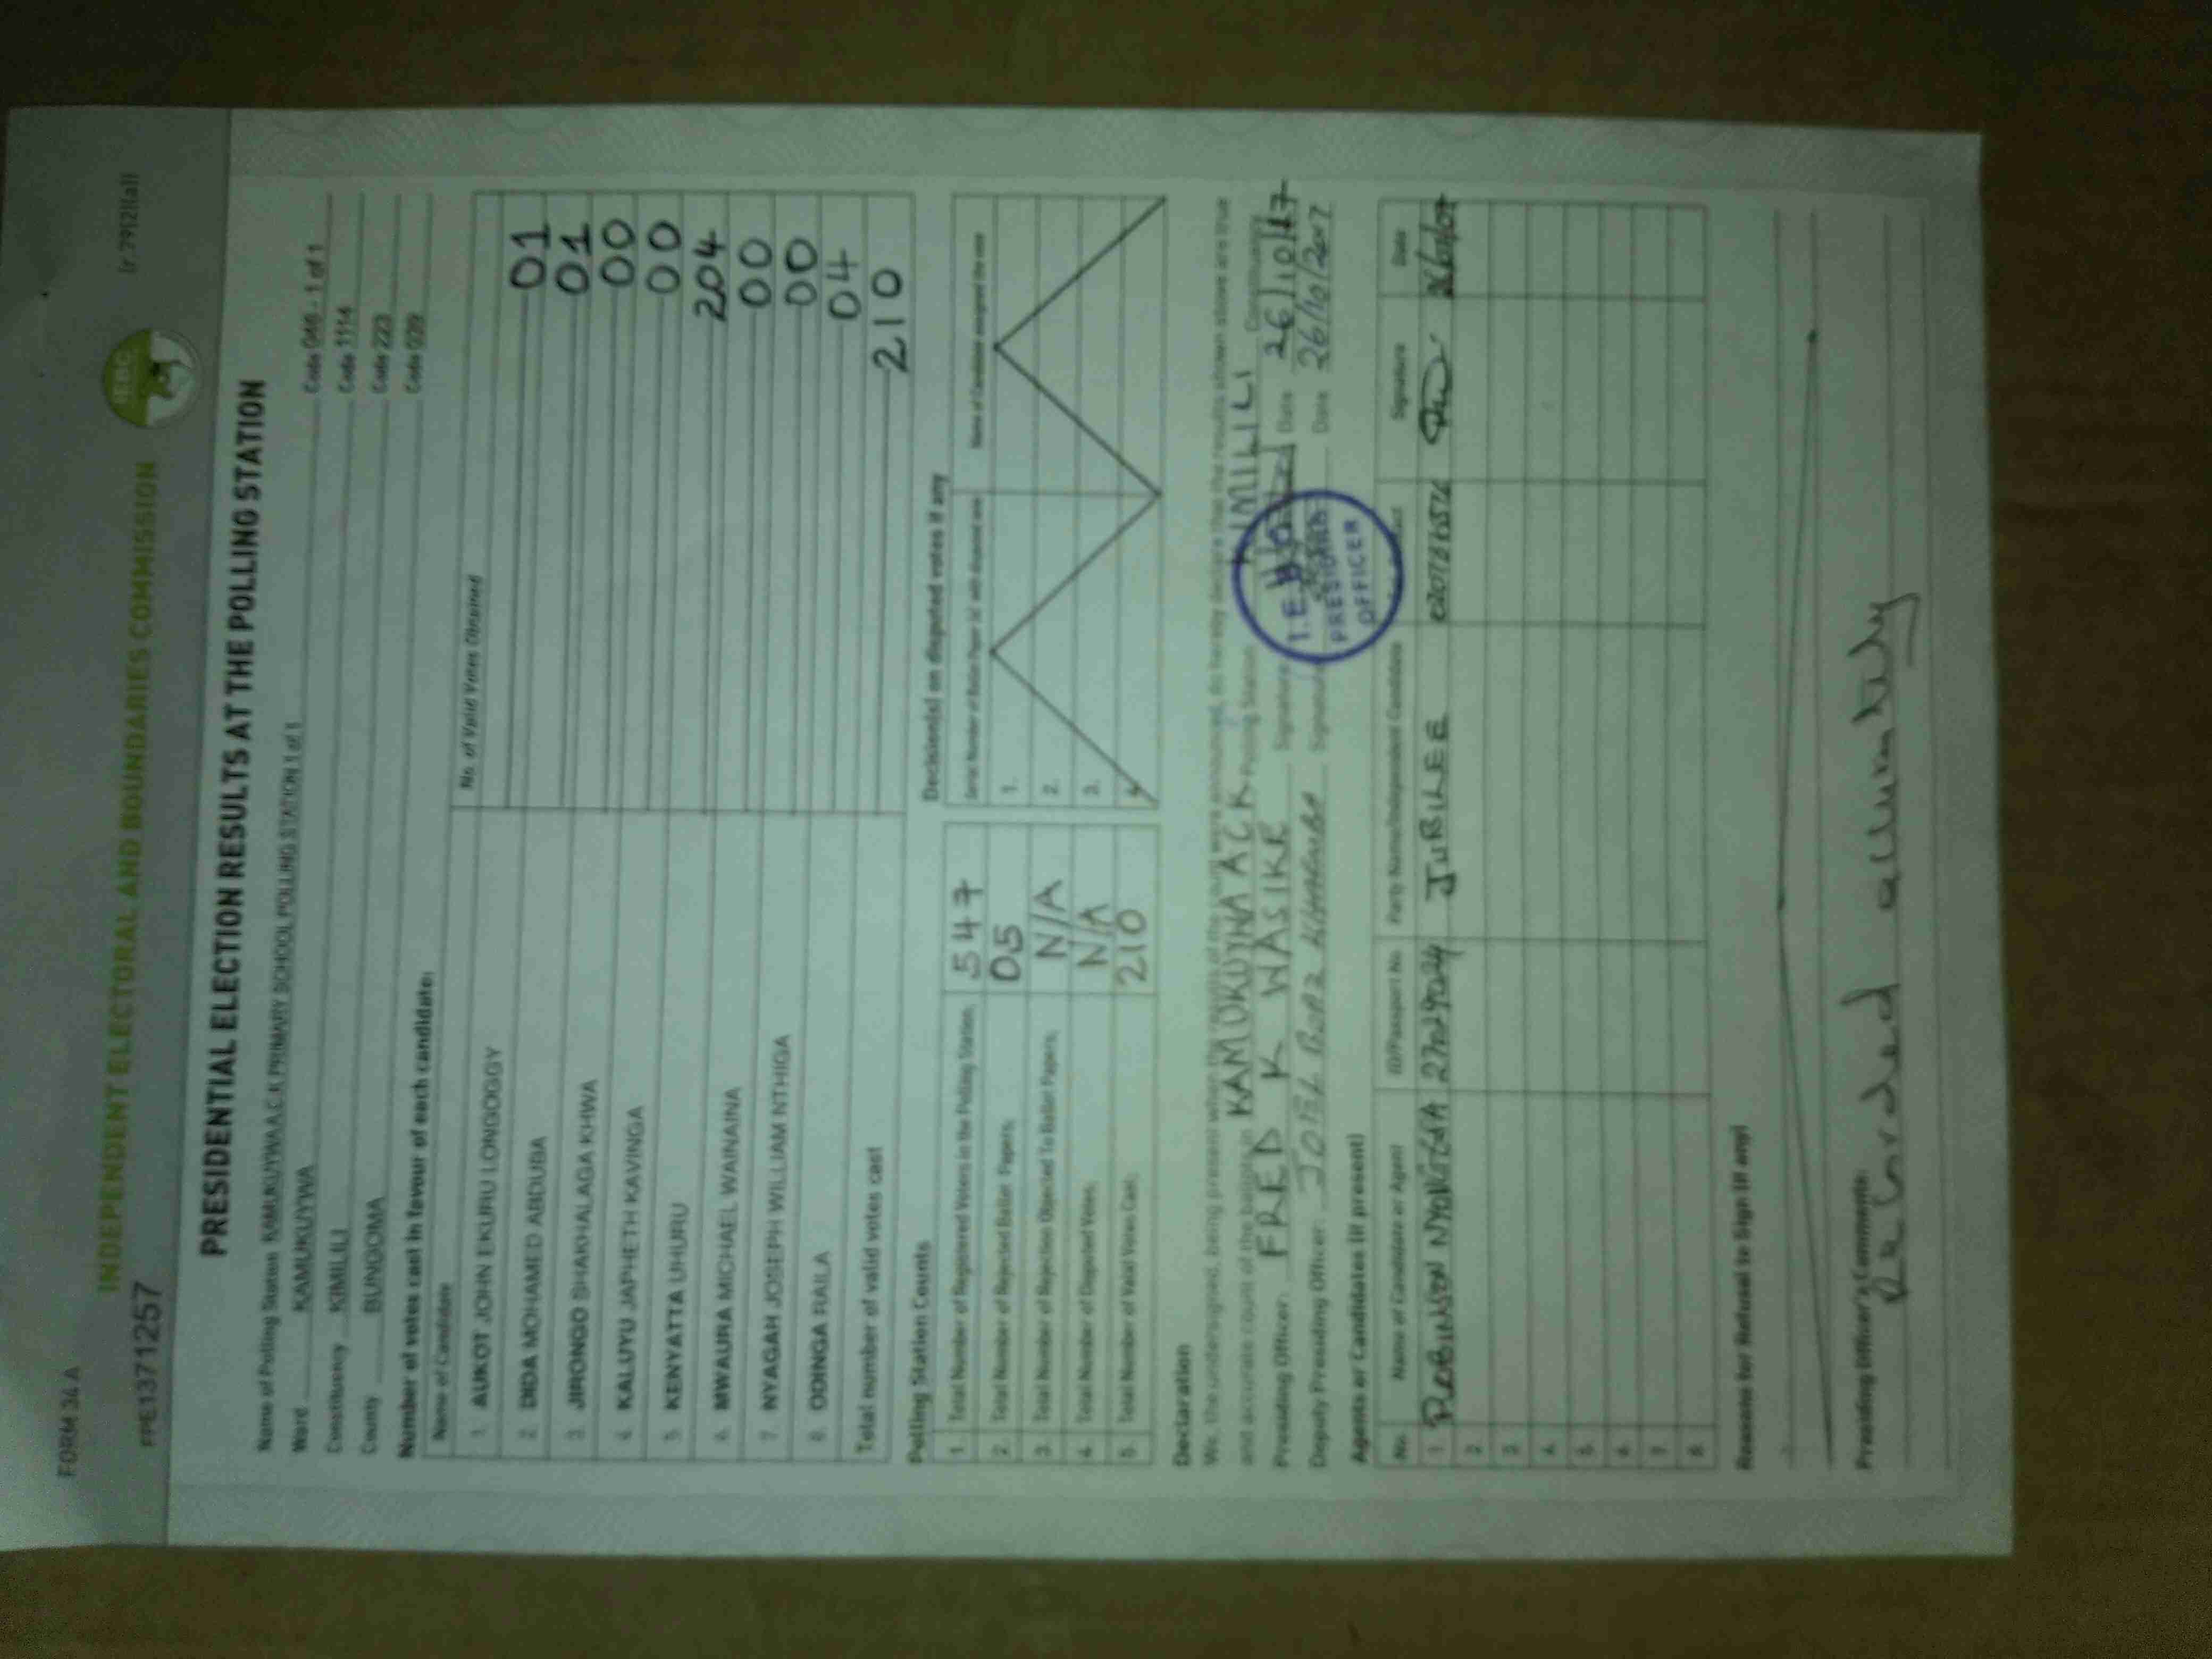 FORM 34 A
FPE1371257
INDEPENDENT ELECTORAL AND BOUNDARIES COMMISSION
IEBC
[r.79(2)(a)]
PRESIDENTIAL ELECTION RESULTS AT THE POLLING STATION
Name of Polling Station KAMUKUYWA A.C.K PRIMARY SCHOOL POLLING STATION 1 of 1 Code 048 - 1 of 1
Ward KAMUKUYWA Code 1114
Constituency KIMILILI Code 223
County BUNGOMA Code 039
Number of votes cast in favour of each candidate:
Name of Candidate No. of Valid Votes Obtained
1. AUKOT JOHN EKURU LONGOGGY 01
2. DIDA MOHAMED ABDUBA 01
3. JIRONGO SHAKHALAGA KHWA 00
4. KALUYU JAPHETH KAVINGA 00
5. KENYATTA UHURU 204
6. MWAURA MICHAEL WAINAINA 00
7. NYAGAH JOSEPH WILLIAM NTHIGA 00
8. ODINGA RAILA 04
Total number of valid votes cast 210
Polling Station Counts
1. Total Number of Registered Voters in the Polling Station: 547
2. Total Number of Rejected Ballot Papers: 05
3. Total Number of Rejection Objected To Ballot Papers: N/A
4. Total Number of Disputed Votes: N/A
5. Total Number of Valid Votes Cast: 210
Decision(s) on disputed votes if any
Name of Candidate assigned the vote
1.
2.
3.
4.
Declaration
We, the undersigned, being present when the results of the count were announced, do hereby declare that the results shown above are true
and accurate count of the ballots in KAMUKUYWA ACK Polling Station KIMILILI Constituency
Presiding Officer: FRED K WASIKE Signature Date 26/10/17
Deputy Presiding Officer: JOEL Signature Date 26/10/2017
I.E.B.C
PRESIDING
OFFICER
Agents or Candidates (if present)
No. Name of Candidate or Agent ID/Passport No. Party Name/Independent Candidate Signature Date
1. ROBINSON 27029024 JUBILEE
2.
3.
4.
5.
6.
7.
8.
Reasons for Refusal to Sign (if any)
Presiding Officer's Comments:
Recorded accurately